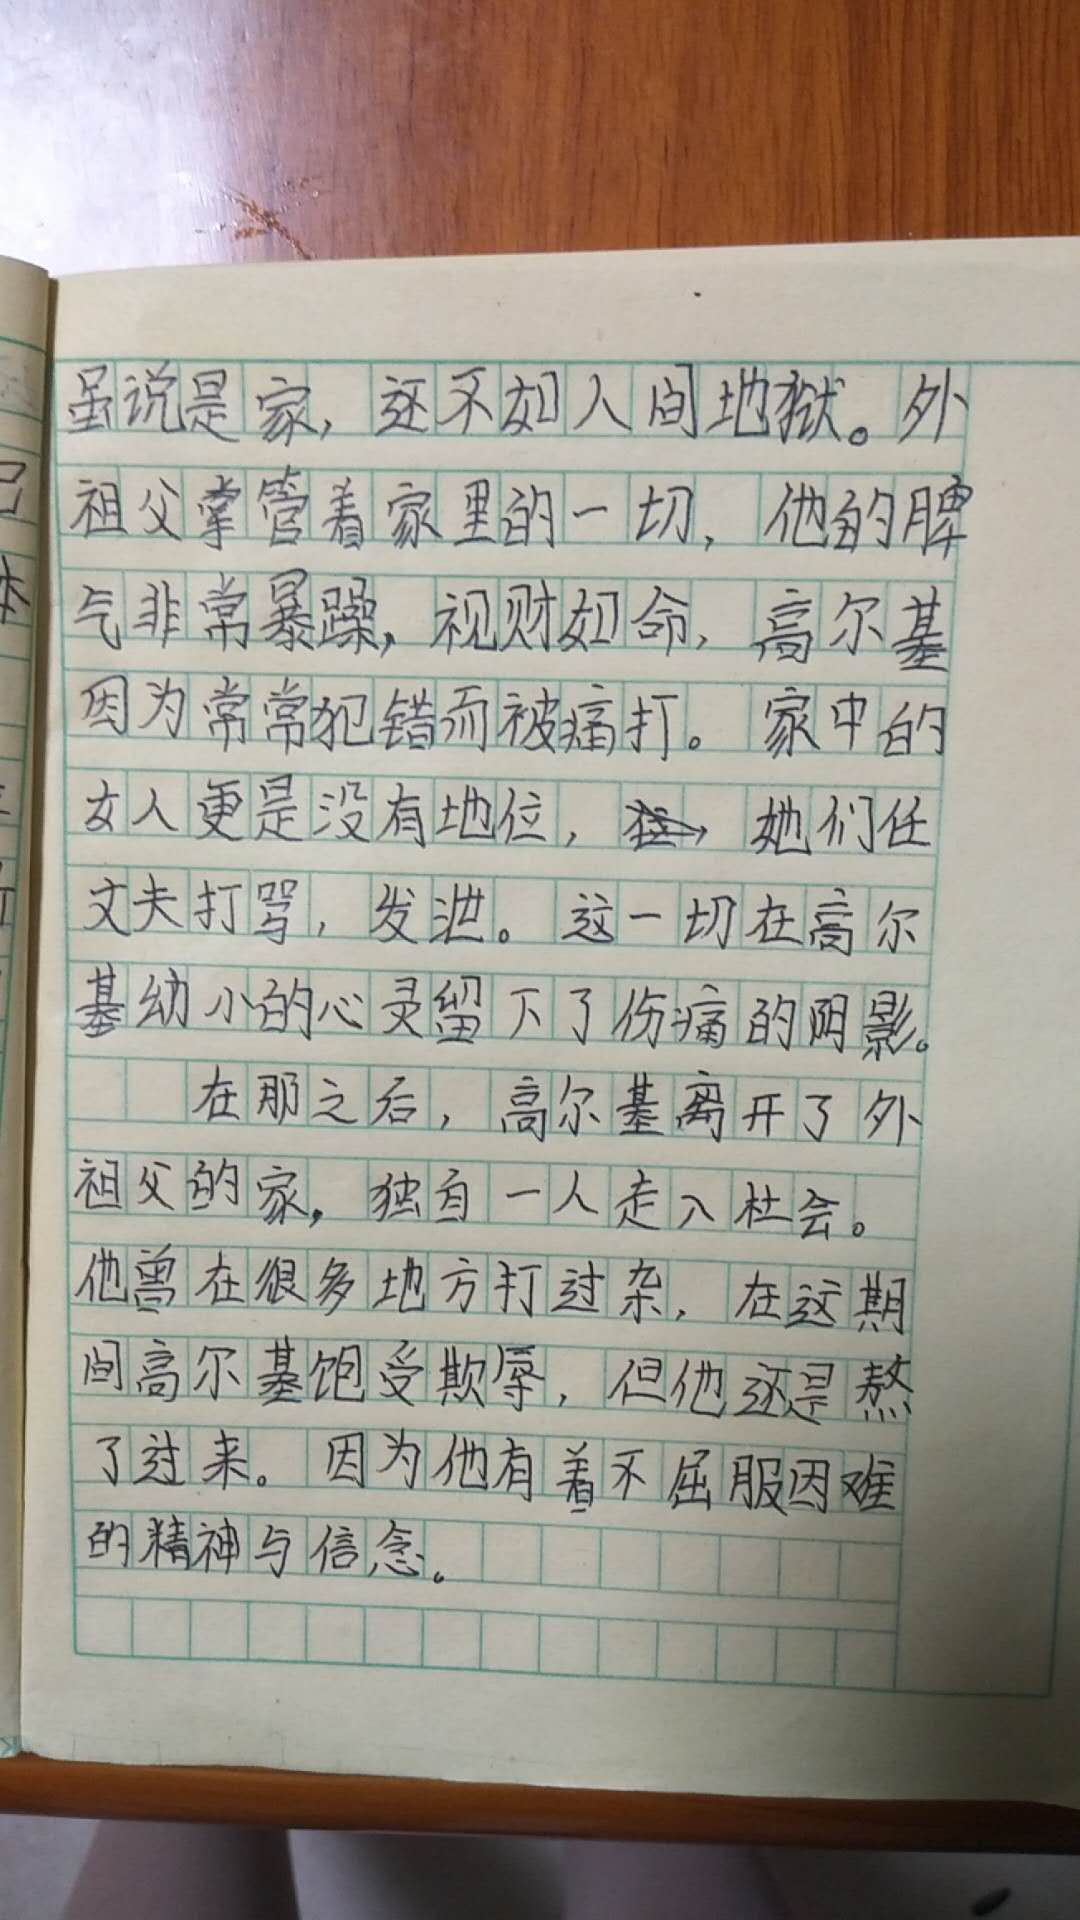 虽说是家，还不如人间地狱。外
祖父掌管着家里的一切，他的脾
气非常暴躁，视财如命，高尔基
因为常常犯错而被痛打。家中的
女人更是没有地位，她们任
丈夫打骂，发泄。这一切在高尔
基幼小的心灵留下了伤痛的阴影。
在那之后，高尔基离开了外
祖父的家，独自一人走入社会。
他曾在很多地方打过杂，在这期
间高尔基饱受欺辱，但他还是熬
了过来。因为他有着不屈服困难
的精神与信念。